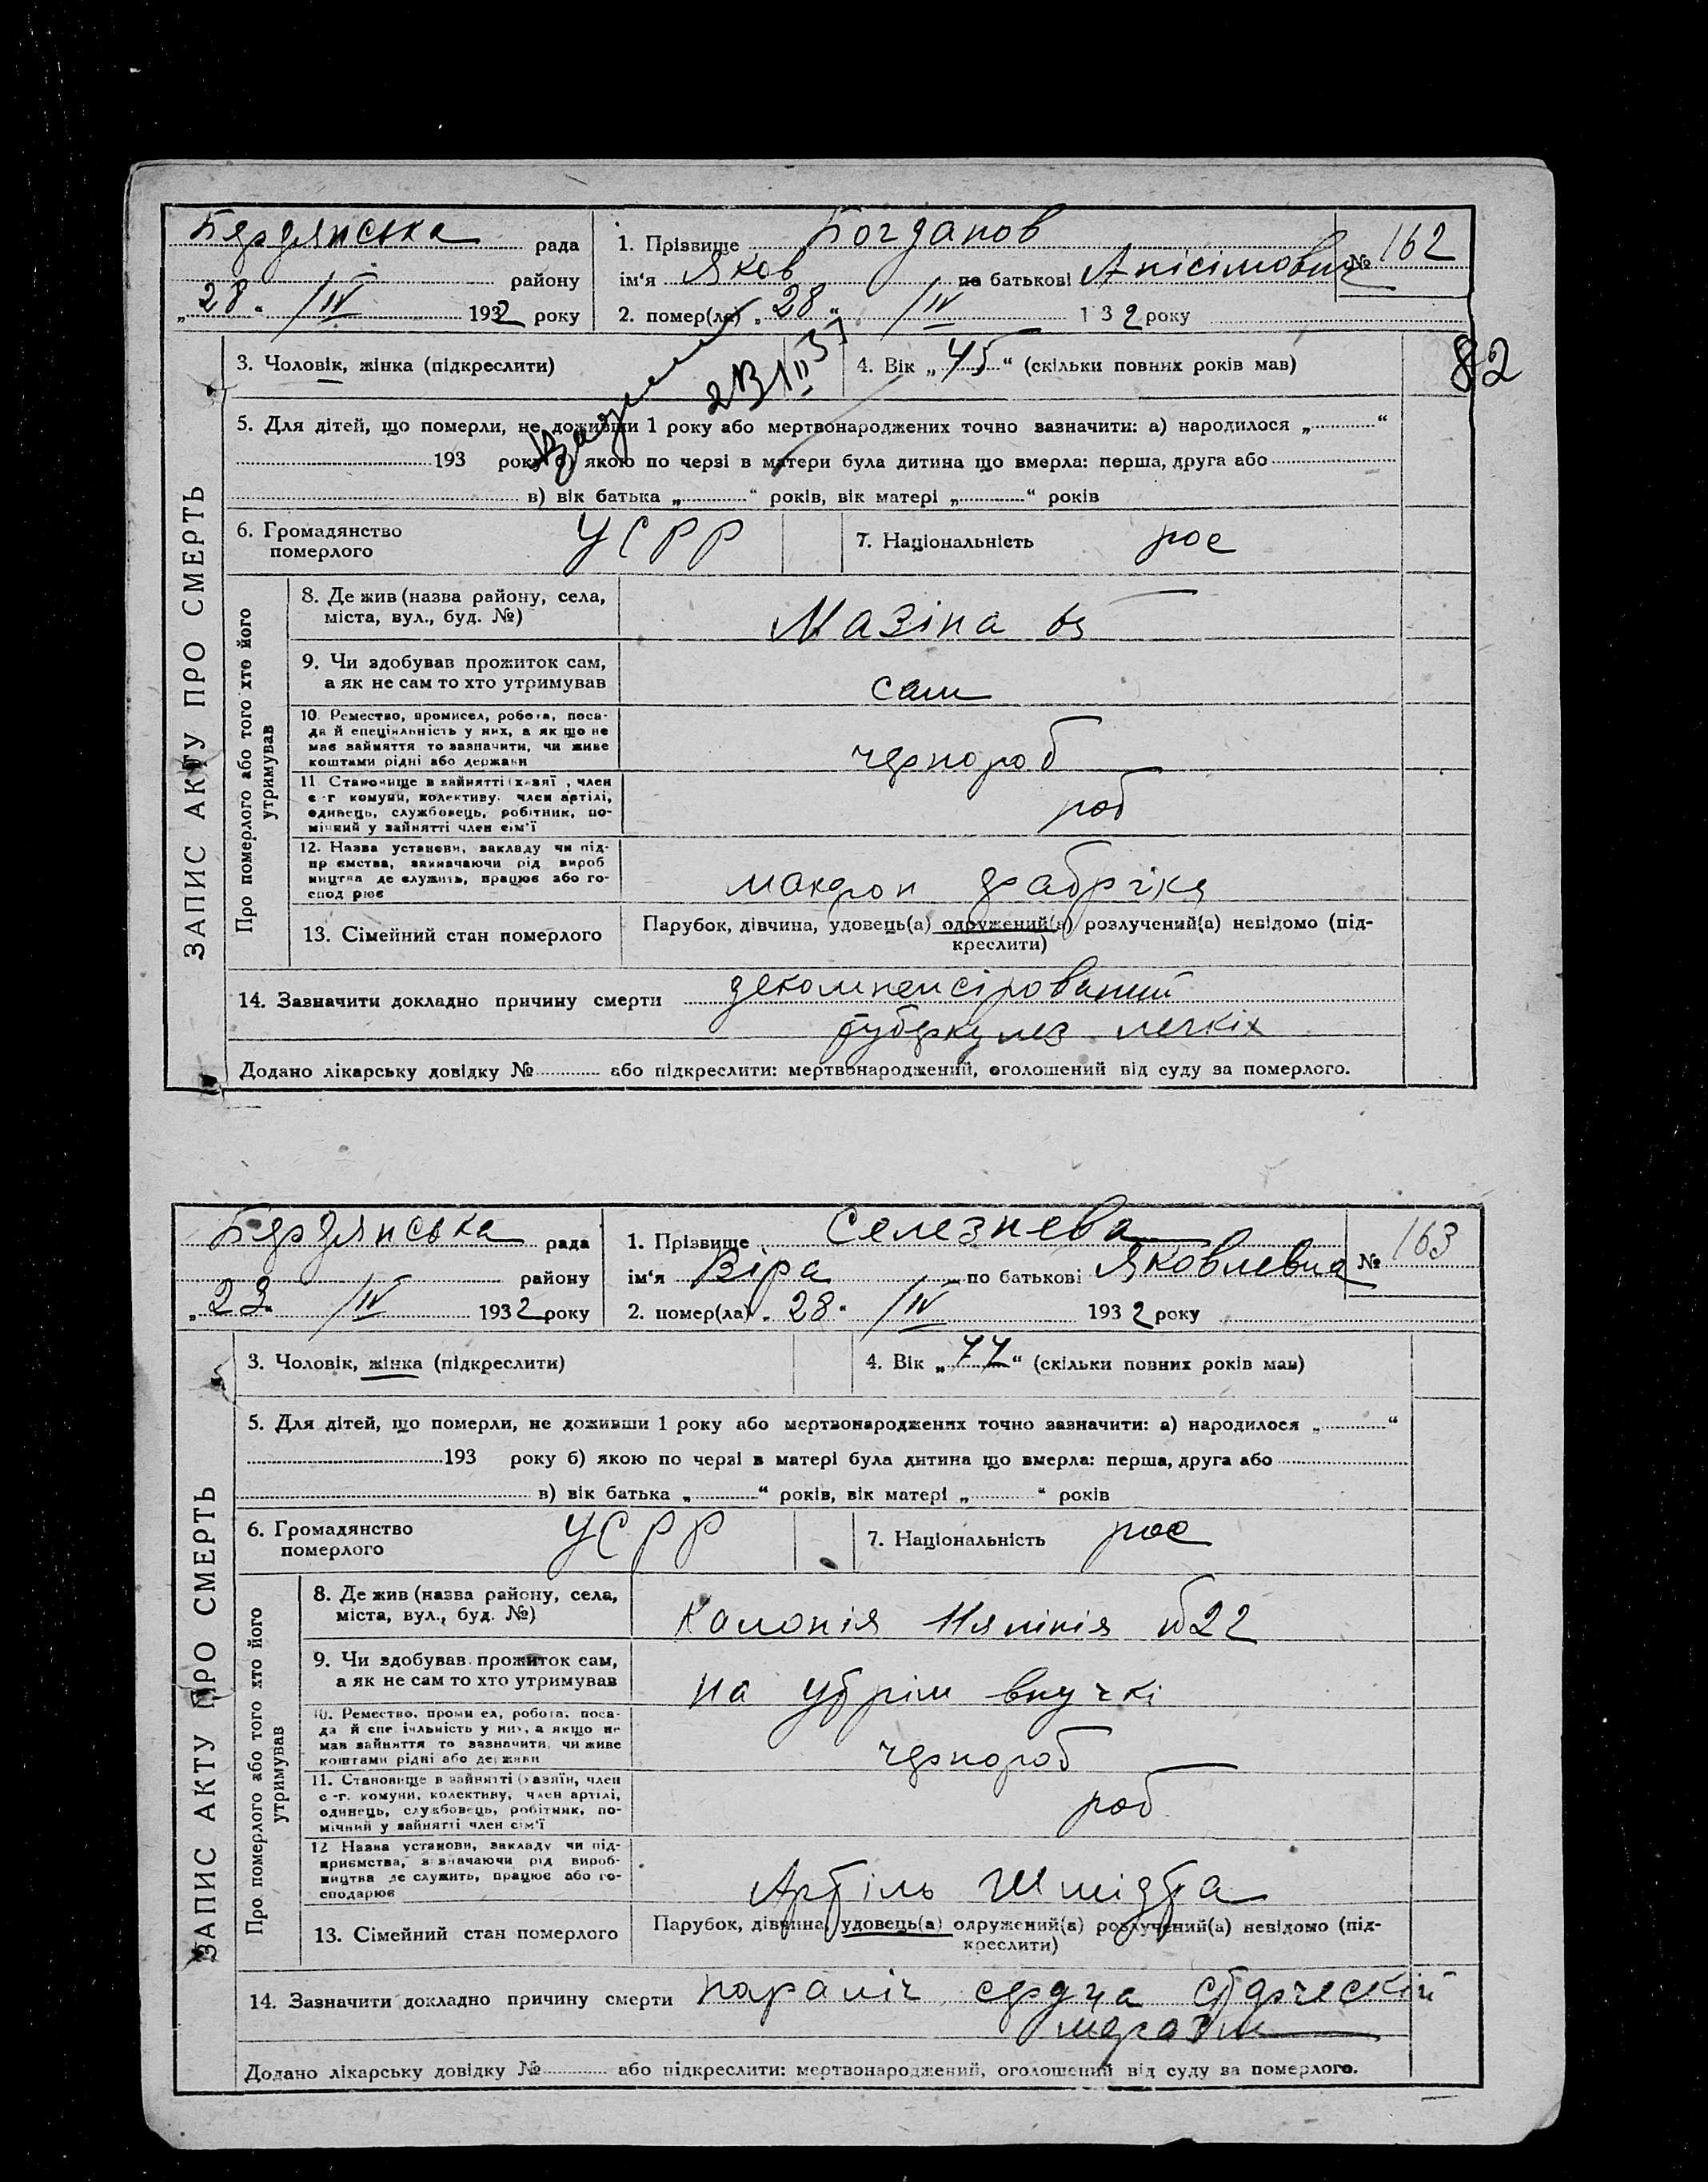 Бердянська рада
району
„28“ /IV 1932 року
1. Прізвище Богданов
ім'я Яков по батькові Анісімович
№ 162
2. помер(ла) „28“ /IV 1 3 2 року
82
3. Чоловік, жінка (підкреслити)
4. Вік „45“ (скільки повних років мав)
5. Для дітей, що померли, не доживши 1 року або мертвонароджених точно зазначити: а) народилося „ “
193 року б) якою по черзі в матери була дитина що вмерла: перша, друга або
в) вік батька „ “ років, вік матері „ “ років
6. Громадянство померлого УСРР
7. Національність рос
ЗАПИС АКТУ ПРО СМЕРТЬ
Про померлого або того хто його утримував
8. Де жив (назва району, села,
міста, вул., буд. №)
Мазіна 65
9. Чи здобував прожиток сам,
а як не сам то хто утримував
сам
10. Ремество, промисел, робота, поса-
да й спеціяльність у них, а як що не
має зайняття то зазначити, чи живе
коштами рідні або держави
чернороб
11. Становище в зайнятті (х зяї , член
с -г комуни, колективу. член артілі,
одинець, службовець, робітник, по-
мічний у зайнятті член сім'ї
роб
12. Назва установи, закладу чи під-
пр ємства, зазначаючи рід вироб
ництва де служить, працює або го-
спод рює
макарон фабріка
13. Сімейний стан померлого
Парубок, дівчина, удовець(а) одружений(а) розлучений(а) невідомо (під-
креслити)
14. Зазначити докладно причину смерти декомпенсірований
туберкулез легкіх
Додано лікарську довідку № або підкреслити: мертвонароджений, оголошений від суду за померлого.
Бердянська рада
району
„23“ /IV 1932 року
1. Прізвище Селезнева
ім'я Віра по батькові Яковлевна
№ 163
2. помер(ла) „28“ /IV 1932 року
3. Чоловік, жінка (підкреслити)
4. Вік „77“ (скільки повних років мав)
5. Для дітей, що померли, не доживши 1 року або мертвонароджених точно зазначити: а) народилося „ “
193 року б) якою по черзі в матері була дитина що вмерла: перша, друга або
в) вік батька „ “ років, вік матері „ “ років
6. Громадянство померлого УСРР
7. Національність рос
ЗАПИС АКТУ ПРО СМЕРТЬ
Про померлого або того хто його утримував
8. Де жив (назва району, села,
міста, вул., буд. №)
Калонія №22
9. Чи здобував прожиток сам,
а як не сам то хто утримував
на утрім внучкі
10. Ремество, проми ел, робота, поса-
да й спе іяльність у них, а якщо не
мав зайняття то зазначити, чи живе
коштами рідні або держави
чернороб
11. Становище в зайнятті (хазяїн, член
с -г. комуни, колективу, член артілі,
одинець, службовець, робітник, по-
мічний у зайнятті член сім'ї
роб
12 Назва установи, закладу чи під-
приємства, зазначаючи рід вироб-
ництва де служить, працює або го-
сподарює
Артіль Шмідта
13. Сімейний стан померлого
Парубок, дівчина, удовець(а) одружений(а) розлучений(а) невідомо (під-
креслити)
14. Зазначити докладно причину смерти параліч сердца старческій
маразм
Додано лікарську довідку № або підкреслити: мертвонароджений, оголошений від суду за померлого.